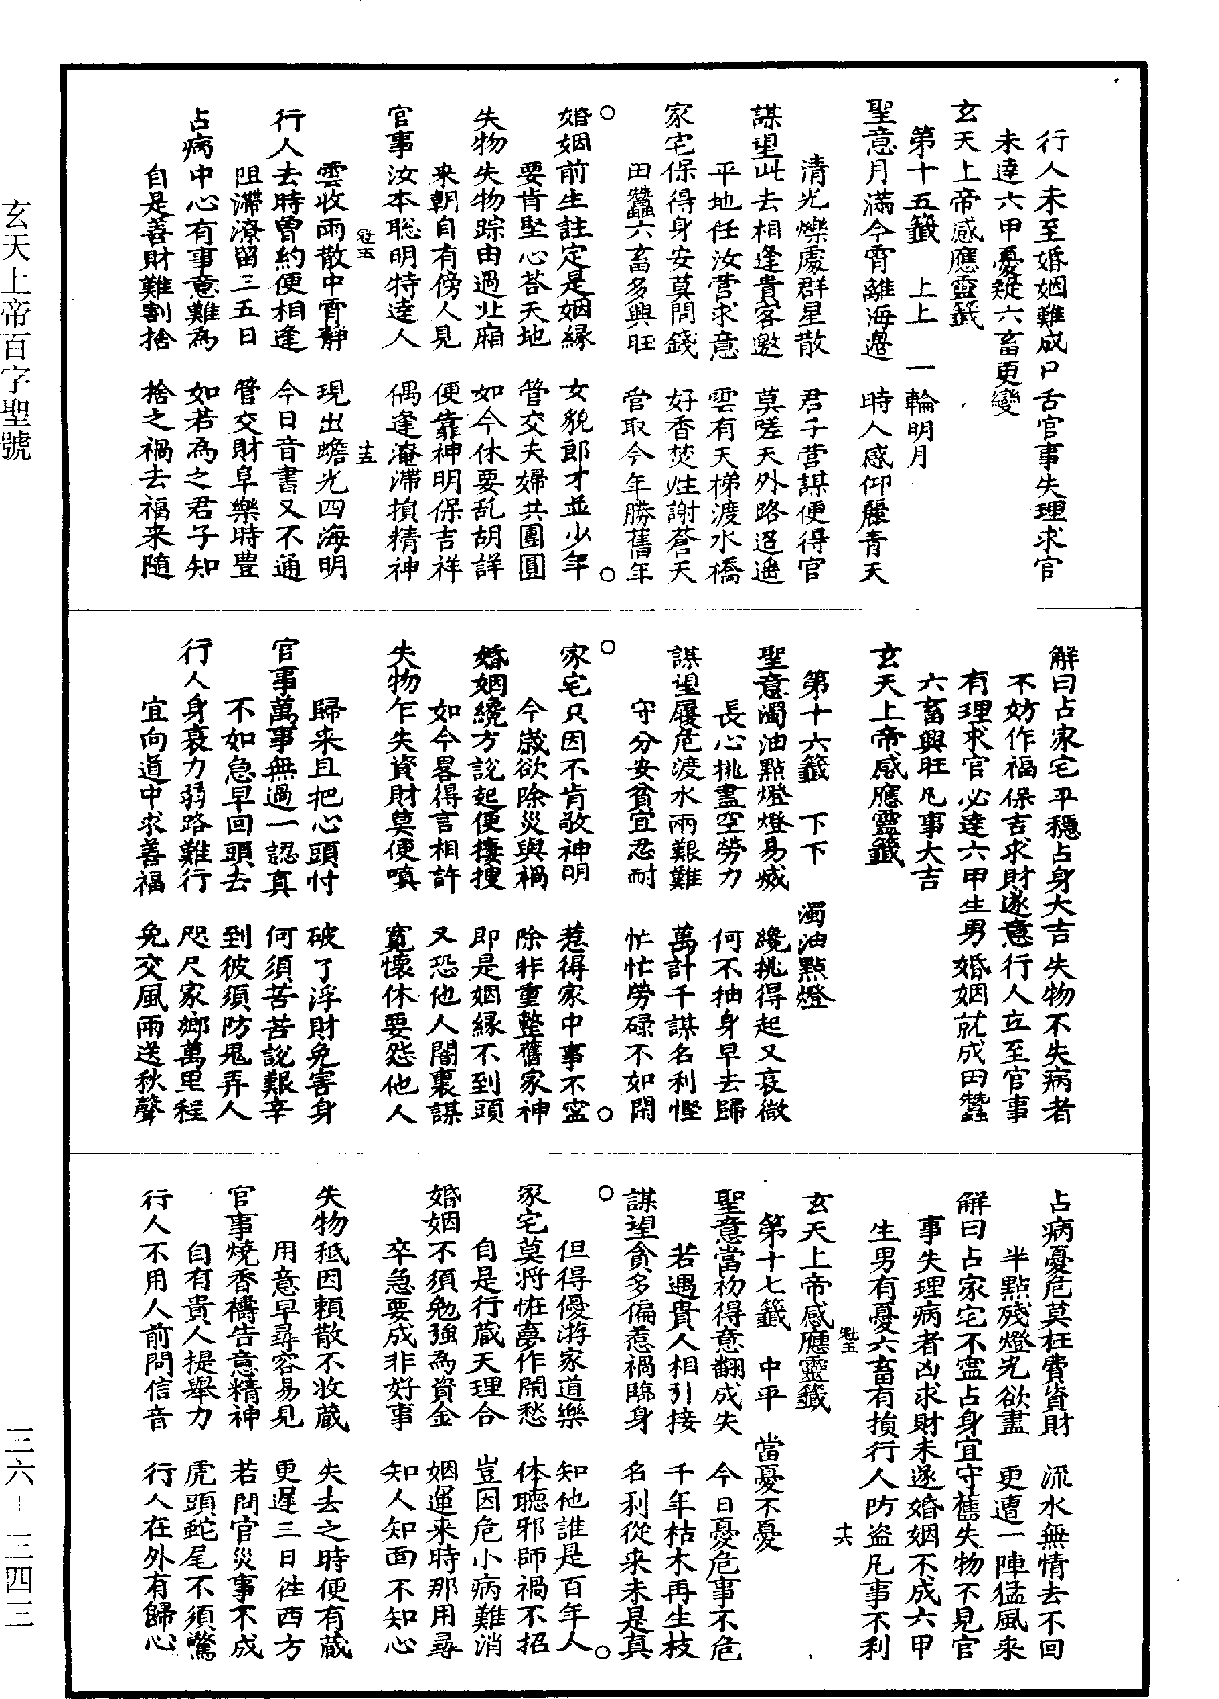 行人未至婚姻難成口舌官事失理求官
未達六甲憂疑六畜更變
玄天上帝感應靈籤
第十五籤　上上　一輪明月
聖意月滿今宵離海邊　時人感仰麗青天
清光爍處群星散　君子營謀便得官
謀望此去相逢貴客邀　莫嗟天外路迢遙
平地任汝營求意　雲有天梯渡水橋
家宅保得身安莫問錢　好香焚炷謝蒼天
田蠶六畜多興旺　管取今年勝舊年
○　○
婚姻前生註定是姻緣　女貌郎才並少年
要肯堅心荅天地　管交夫婦共團圓
失物失物踪由過北廂　如今休要乱胡詳
來朝自有傍人見　便靠神明保吉祥
官事汝本聪明特達人　偶逢淹滯損精神
雲收雨散中霄靜　現出蟾光四海明
行人去時曾約便相逢　今日音書又不通
阻滯潦留三五日　管交財阜樂時豊
占病中心有事意難為　如若為之君子知
自是善財難割捨　捨之禍去福来随
解曰占家宅平穩占身大吉失物不失病者
不妨作福保吉求財遂意行人立至官事
有理求官必達六甲生男婚姻就成田蠶
六畜興旺凡事大吉
玄天上帝感應靈籤
第十六籤　下下　濁油點燈
聖意濁油點燈燈易烕　纔挑得起又衰微
長心挑盡空勞力　何不抽身早去歸
謀望履危渡水兩艱難　萬計千謀名利慳
守分安貧宜忍耐　忙忙勞碌不如閑
○　○
家宅只因不肯敬神明　惹得家中事不寍
今歲欲除災與禍　除非重整舊家神
婚姻纔方說起便捿搜　即是姻緣不到頭
如今畧得言相許　又恐他人闇裏謀
失物乍失資財莫便嗔　寬懷休要怨他人
歸来且把心頭忖　破了浮財免害身
官事萬事無過一認真　何須苦苦說艱辛
不如急早回頭去　到彼須防鬼弄人
行人身衰力弱路難行　咫尺家鄉萬里程
宜向道中求善福　免交風雨送秋聲
占病憂危莫枉費資財　流水無情去不回
半點殘燈光欲盡　更遭一陣猛風来
解曰占家宅不寍占身宜守舊失物不見官
事失理病者凶求財未遂婚姻不成六甲
生男有憂六畜有損行人防盗凡事不利
玄天上帝感應靈籤
第十七籤　中平　當憂不憂
聖意當初得意翻成失　今日憂危事不危
若遇貴人相引接　千年枯木再生枝
謀望貪多偏惹禍臨身　名利從来未是真
○　○
但得優游家道樂　知他誰是百年人
家宅莫將恠夢作閑愁　休聽邪師禍不招
自是行藏天理合　豈因危小病難消
婚姻不須勉強為資金　姻運来時那用尋
卒急要成非好事　知人知面不知心
失物秪因賴散不收藏　失去之時便有蔵
用意早尋容易見　更遲三日徃西方
官事燒香禱告意精神　若問官災事不成
自有貴人提舉力　虎頭蛇尾不須驚
行人不用人前問信音　行人在外有歸心
玄天上帝百字聖號
三六－三四三